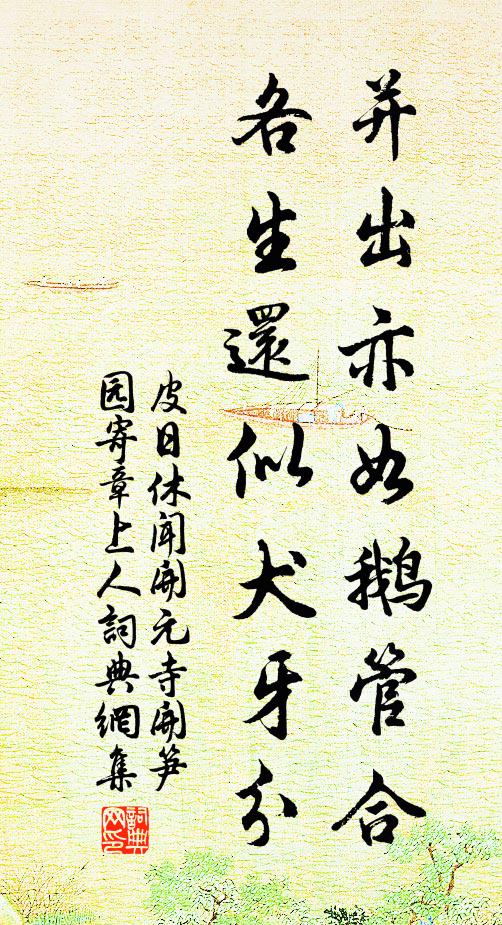 并出亦如鹅管合
各生還似犬牙分
皮日休聞開元寺開笋
园寄章上人詞典網集
詞典网印